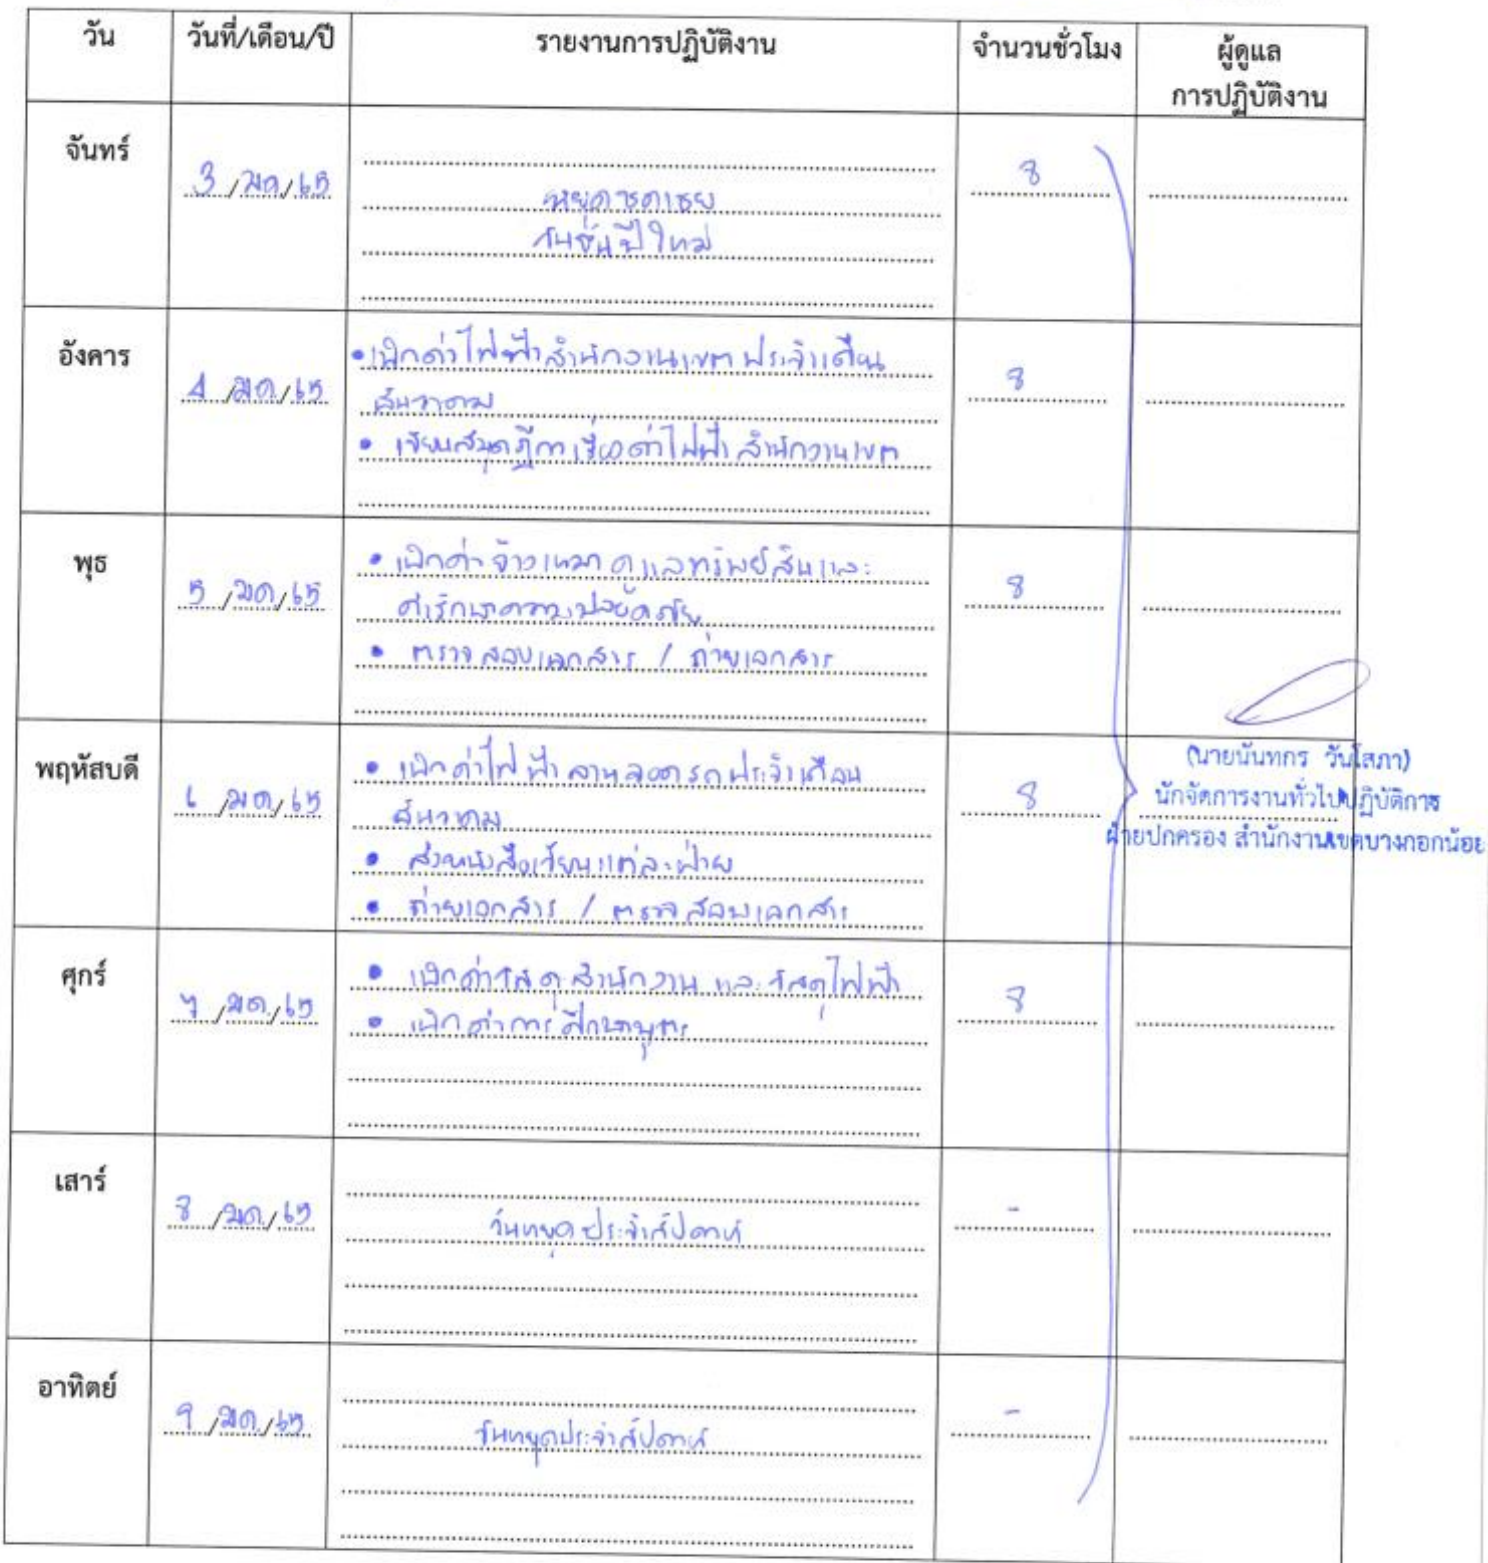 วัน วันที่/เดือน/ปี รายงานการปฏิบัติงาน จำนวนชั่วโมง ผู้ดูแล
การปฏิบัติงาน
จันทร์
3 /มค/65 8
หยุดชดเชย
วันขึ้นปีใหม่
อังคาร
4 /มค/65 8
• เบิกค่าไฟฟ้าสำนักงานเขต ประจำเดือน
ธันวาคม
• เขียนสมุดฎีกา เรื่องค่าไฟฟ้า สำนักงานเขต
พุธ
5 /มค/65 8
• เบิกค่าจ้างเหมาดูแลทรัพย์สินและ
ค่ารักษาความปลอดภัย
• ตรวจสอบเอกสาร / ถ่ายเอกสาร
พฤหัสบดี
6 /มค/65 8
• เบิกค่าไฟฟ้า ลานจอดรถ ประจำเดือน
ธันวาคม
• ส่งหนังสือเวียนแต่ละฝ่าย
• ถ่ายเอกสาร / ตรวจสอบเอกสาร
(นายนันทกร วันโสภา)
นักจัดการงานทั่วไปปฏิบัติการ
ฝ่ายปกครอง สำนักงานเขตบางกอกน้อย
ศุกร์
7 /มค./65 8
• เบิกค่าวัสดุสำนักงาน และวัสดุไฟฟ้า
• เบิกค่าการศึกษาบุตร
เสาร์
8 /มค./65 -
วันหยุดประจำสัปดาห์
อาทิตย์
9 /มค./65 -
วันหยุดประจำสัปดาห์